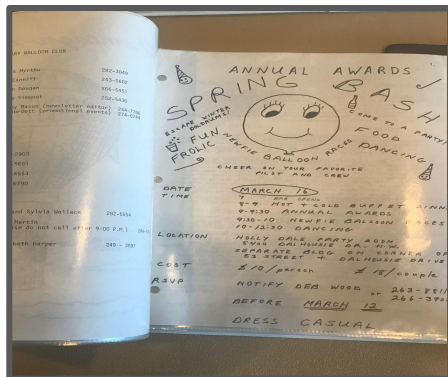 RY BALLOON CLUB
s Myrthu 282-3040
Zanoff 243-5602
n Dougan
ry Mason (newsletter editor)
rdett (promotional events)
and Sylvia Wallace 282-5554
Martin
se do not call after 9:00 P.M.)
beth Harper 249 - 3807
ANNUAL AWARDS
SPRING BASH
ESCAPE WINTER DOLDRUMS!
COME TO A PARTY!
FUN
FROLIC
NEWFIE BALLOON RACES
FOOD
DANCING
CHEER ON YOUR FAVORITE
PILOT AND CREW
DATE MARCH 16
TIME 7 BAR OPENS
8-9 HOT & COLD BUFFET DINN
9-9:30 ANNUAL AWARDS
9:30-10 NEWFIE BALLOON RACES
10-12:30 DANCING
LOCATION HOLLY DALE PARTY ROOM
DALHOUSIE DR. N.W.
SEPARATE BLDG ON CORNER OF
53 STREET & DALHOUSIE DRIVE
COST $10/person $15/couple
RSVP NOTIFY DEB WOOD or 263-
266-
BEFORE MARCH 12
DRESS CASUAL